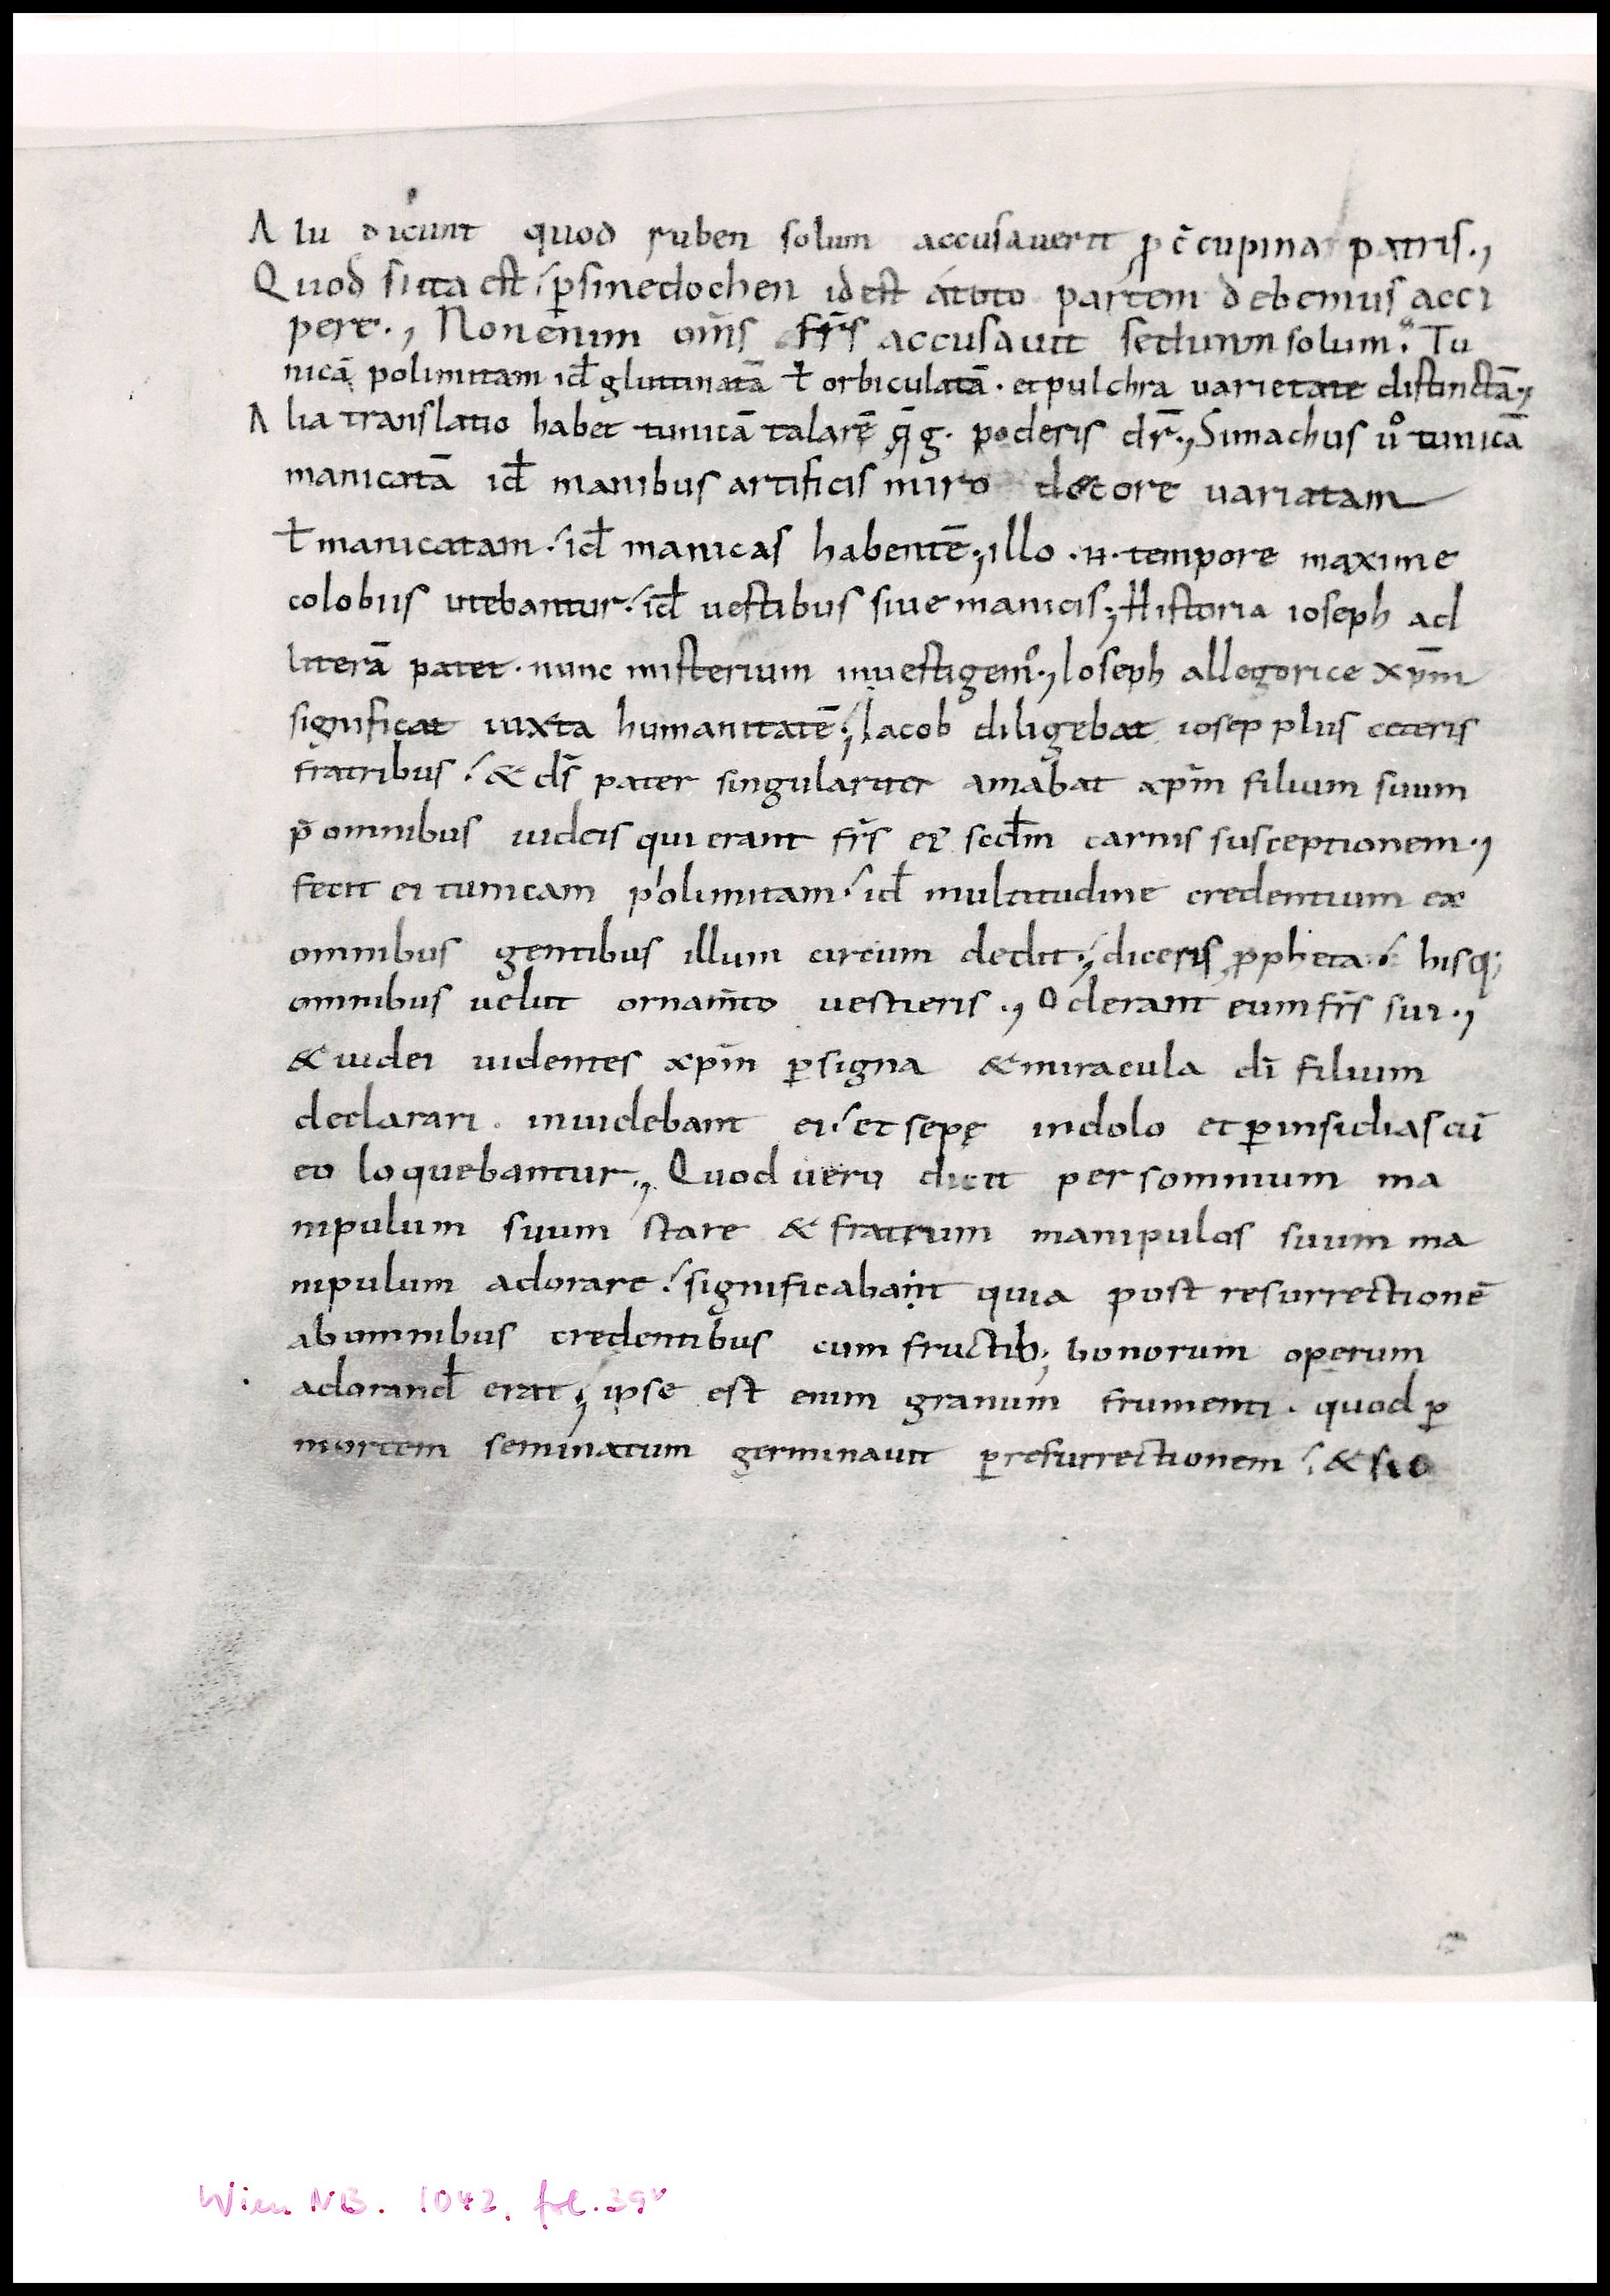 Alii dicunt quod ruben solum accusaverit p̱ c̄cupina patris.,
Quod si ita est ꝑ sinedochen id est a toto partem debemus acci
pere., Non enim om̄s fr̄s accusavit sed unum solum. Tu
nicā polimitam id̄ glutinatā ł orbiculatā. et pulchra varietate distinctā.,
Alia translatio habet tunicā talarē q̄ g. poderis dr̄., Simachus ů tunicā
manicatā id̄ manibus artificis miro decore variatam
ł manicatam. id̄ manicas habentē; illo .n. tempore maxime
colobiis utebantur. id̄ vestibus sive manicis; Historia ioseph ad
literā patet. nunc misterium investigem᷒., Ioseph allegorice xp̄m
significat iuxta humanitatē; Iacob diligebat iosep plus ceteris
fratribus. & ds̄ pater singulariter amabat xp̄m filium suum
p̄ omnibus iudeis qui erant fr̄s ei᷒ scd̄m carnis susceptionem.,
fecit ei tunicam polimitam. id̄ multitudine credentium ex
omnibus gentibus illum circum dedit; diceris ꝓpheta. hisq;
omnibus velut ornam̄to vestieris., Oderant eum fr̄s sui.,
& iudei videntes xp̄m ꝑ signa & miracula dī filium
declarari. invidebant ei. et sepę in dolo et ꝑ insidias cū
eo loquebantur., Quod vero dicit per somnium ma
nipulum suum stare & fratrum manipulos suum ma
nipulum adorare. significabant quia post resurrectionē
ab omnibus credentibus cum fructib; bonorum operum
adorand̄ erat; ipse est enim granum frumenti. quod ꝑ
mortem seminatum germinavit ꝑ resurrectionem. & sic
Wien NB. 1042. fol. 39v